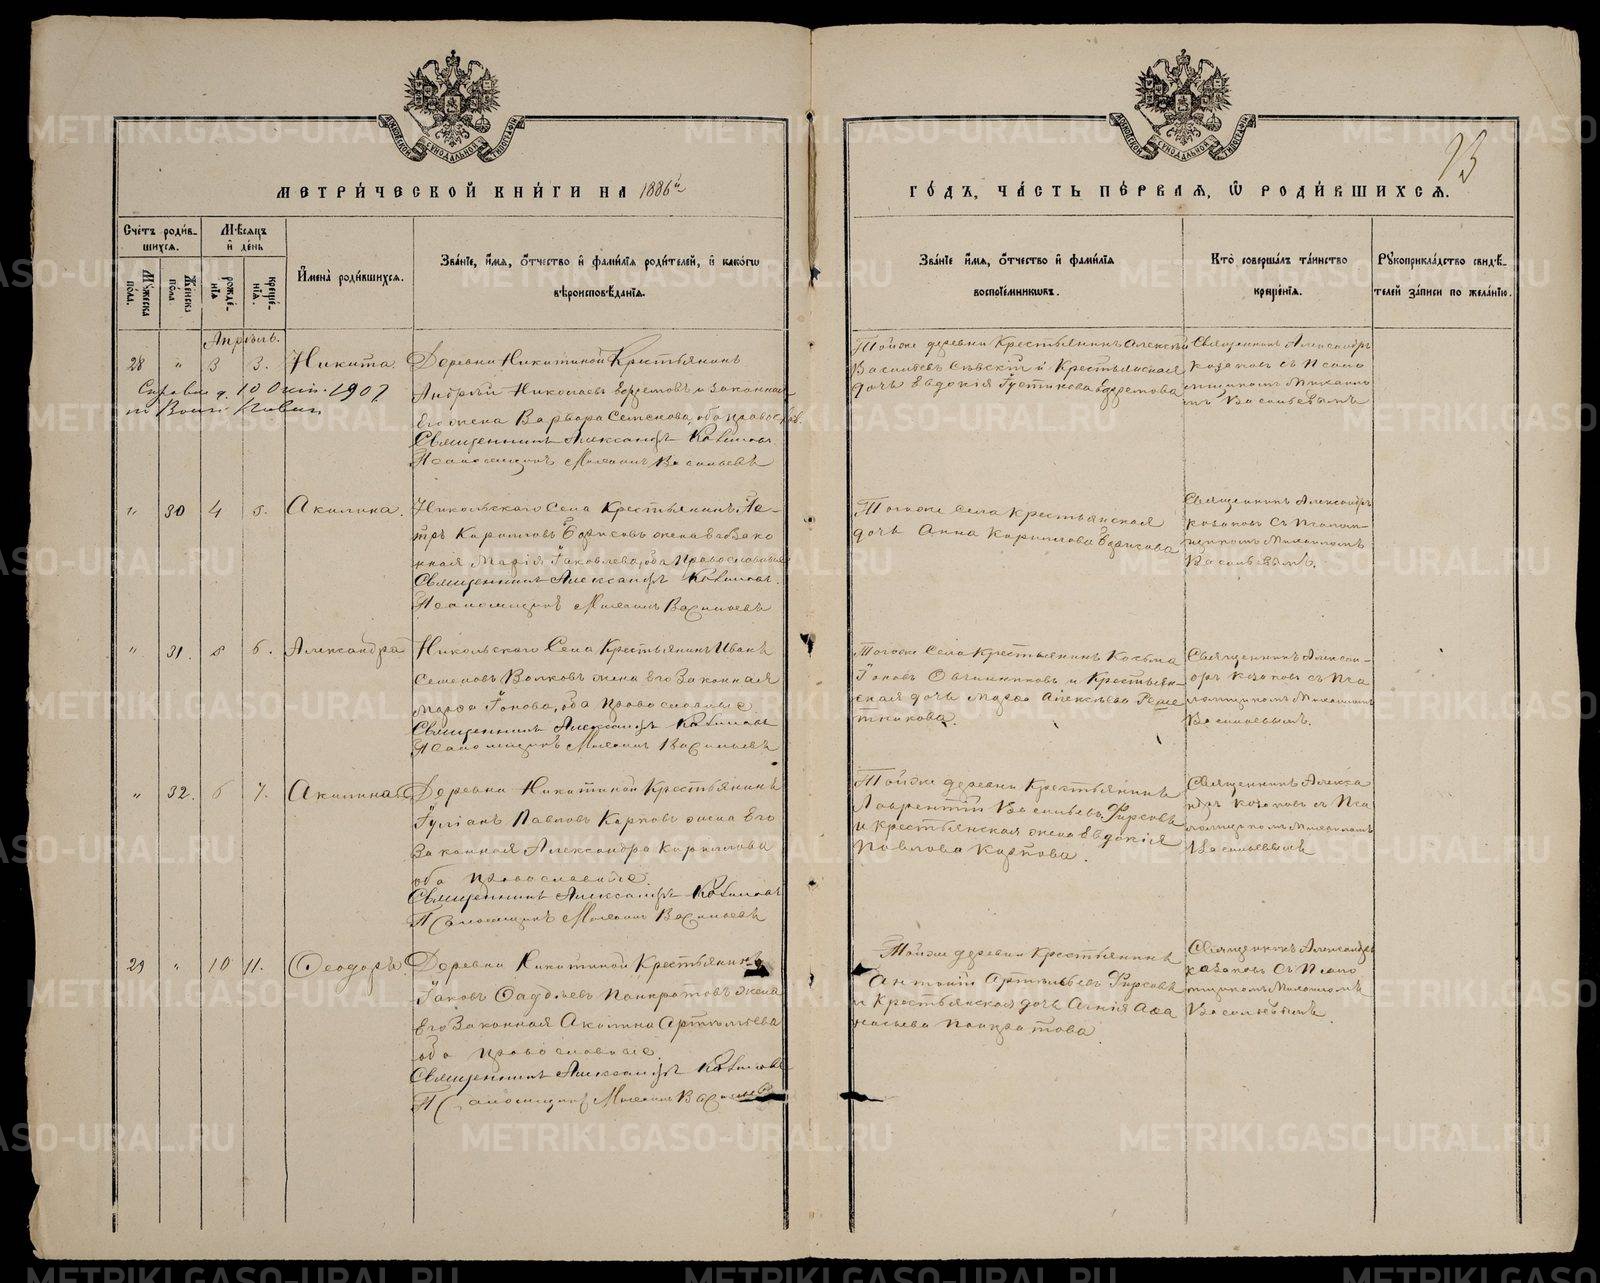 МЕТРИ́ЧЕСКОЙ КНИ́ГИ НА 1886й
ГО́ДЪ, ЧА́СТЬ ПЕ́РВАЯ, Ѡ РОДИ́ВШИХСЯ.
Сче́тъ роди́в-
шихся.
Му́жеска по́ла.
Же́нска по́ла.
Мѣ́сяцъ
и҆ де́нь
рожде́-
нїя
креще́-
нїя.
И҆мена̀ роди́вшихся.
Зва́нїе, и҆́мя, ѻ҆́тчество и҆ фами́лїя роди́телей, и҆ како́гѡ
вѣроисповѣ́данїя.
Зва́нїе и҆́мя, ѻ҆́тчество и҆ фами́лїя
воспрїе́мникѡвъ.
Кто̀ соверша́лъ та́инство
креще́нїя.
Рꙋкоприкла́дство свидѣ́-
телей за́писи по жела́нїю.
Апрѣль.
28 " 3 3. Никита
Деревни Никитиной Крестьянинъ
Андрей Николаевъ Ефремовъ и законная
его жена Варвара Семенова, оба православ.
Священникъ Александръ Козаковъ
Псаломщикъ Михаилъ Васильевъ
10 Окт. 1907
Тойже деревни Крестьянинъ Алексѣй
Васильевъ и Крестьянская
дочь Евдокія Ефремова
Священникъ Александръ
Козаковъ съ Псало
мщикомъ Михаило
мъ Васильевымъ
" 30 4 5. Акилина.
Никольскаго Села Крестьянинъ Пе-
тръ Кариловъ Борисовъ жена его Зако
нная Марія Іаковлева, оба Православные
Священникъ Александръ Козаковъ.
Псаломщикъ Михаилъ Васильевъ
Тогоже Села Крестьянская
дочь Анна Карилова Борисова
Священникъ Александръ
Козаковъ съ Псалом-
щикомъ Михаиломъ
Васильевымъ.
" 31. 5 6. Александра
Никольскаго Села Крестьянинъ Иванъ
Семеновъ Волковъ жена его Законная
Марфа Іонова, оба Православные
Священникъ Александръ Козаковъ
Псаломщикъ Михаилъ Васильевъ
Тогоже Села Крестьянинъ Козьма
Іоновъ Овчинниковъ и Крестьян-
ская дочь Марфа Алексѣева Реше
тникова.
Священникъ Алексан-
дръ Козаковъ съ Пса
ломщикомъ Михаиломъ
Васильевымъ.
" 32. 6 7. Акилина
Деревни Никитиной Крестьянинъ
Іуліанъ Павловъ Карповъ жена его
Законная Александра Карилова
оба Православные
Священникъ Александръ Козаковъ
Псаломщикъ Михаилъ Васильевъ
Тойже деревни Крестьянинъ
Лаврентій Васильевъ Фирсовъ
и крестьянская жена Евдокія
Павлова Карпова.
Священникъ Алекса
ндръ Козаковъ съ Пса
ломщикомъ Михаиломъ
Васильевымъ
29 " 10 11. Ѳеодоръ
Деревни Никитиной Крестьянинъ
Іаковъ Ѳаддѣевъ Панкратовъ жена
его Законная Акилина Артемьева
оба Православные.
Священникъ Александръ Козаковъ
Псаломщикъ Михаилъ Васильевъ
Тойже деревни Крестьянинъ
Антоній Артемьевъ Фирсовъ
и Крестьянская дочь Агнія Аѳа
насьева Панкратова.
Священникъ Александръ
Козаковъ съ Псало
мщикомъ Михаиломъ
Васильевымъ.